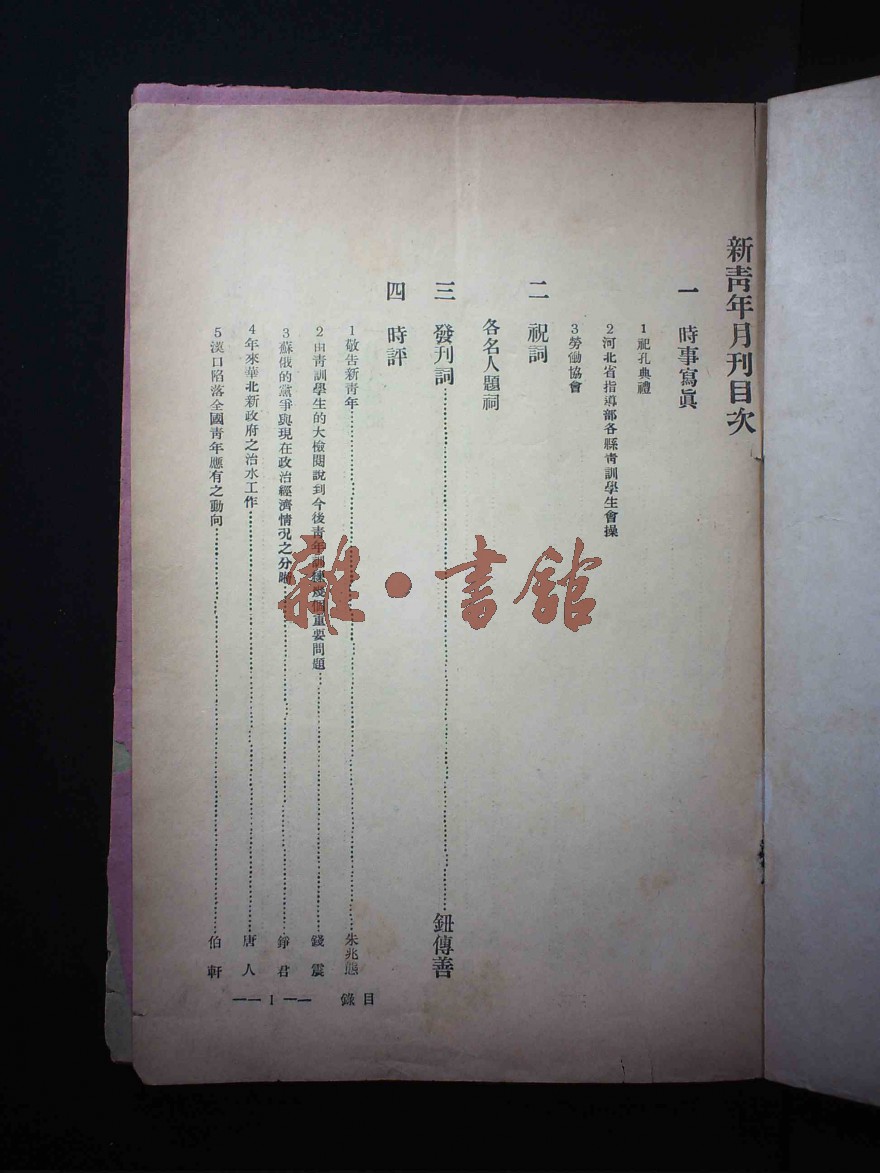 新靑年月刊目次
一 時事寫眞
1 祀孔典禮
2 河北省指導部各縣靑訓學生會操
3 勞働協會
二 祝詞
各名人題祠
三 發刊詞 鈕傳善
四 時評
1 敬告新靑年 朱兆熊
2 由靑訓學生的大檢閱說到今後靑年訓練幾個重要問題 錢震
3 蘇俄的黨爭與現在政治經濟情況之分 錚君
4 年來華北新政府之治水工作 唐人
5 漢口陷落全國靑年應有之動向 伯軒
目錄
— 1 —
雜·書館